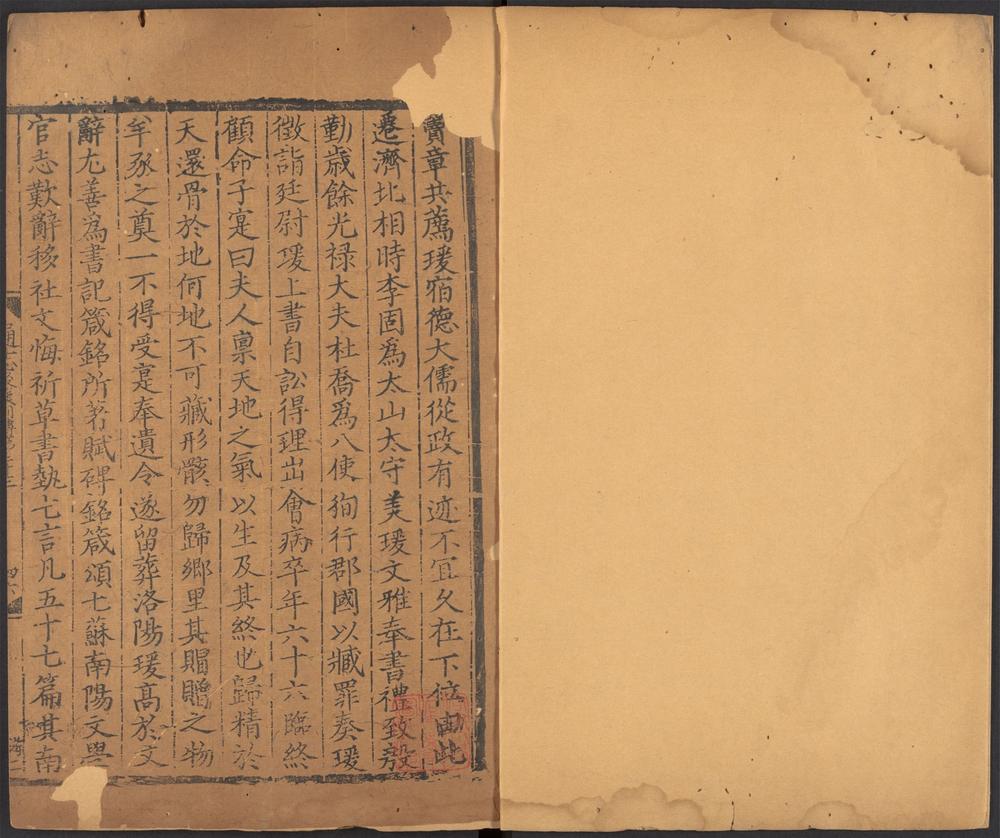 竇章共薦瑗宿德大儒從政有迹不宜久在下位由此
遷濟北相時李固爲太山太守羙瑗文雅奉書禮致殷
勤歳餘光禄大夫杜喬爲八使徇行郡國以臧罪奏瑗
徵詣廷尉瑗上書自訟得理出會病卒年六十六臨終
顧命子寔曰夫人禀天地之氣以生及其終也歸精於
天還骨於地何地不可藏形骸勿歸鄉里其賵贈之物
羊豕之奠一不得受寔奉遺令遂留葬洛陽瑗髙於文
辭尤善爲書記箴銘所著賦碑銘箴頌七蘇南陽文學
官志歎辭移社文悔祈草書埶七言凡五十七篇其南